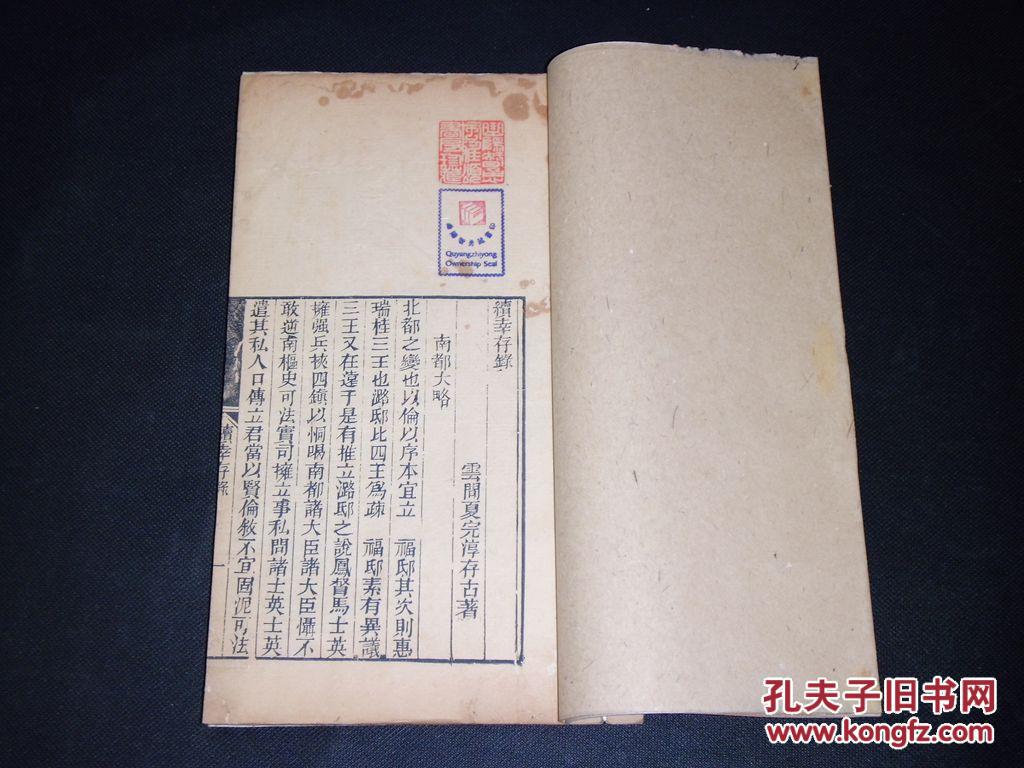 續幸存錄
雲間夏完淳存古著
南都大略
北都之變也以倫以序本宜立 福邸其次則惠
瑞桂三王也潞邸比四王爲疎 福邸素有異議
三王又在遠于是有推立潞邸之說鳳督馬士英
擁强兵挾四鎮以恫喝南都諸大臣諸大臣懾不
敢逆南樞史可法實司擁立事私問諸士英士英
遣其私人口傳立君當以賢倫敘不宜固泥可法
續幸存錄
一
Quyangzhiyong
Ownership Seal
孔夫子旧书网
www.kongfz.com